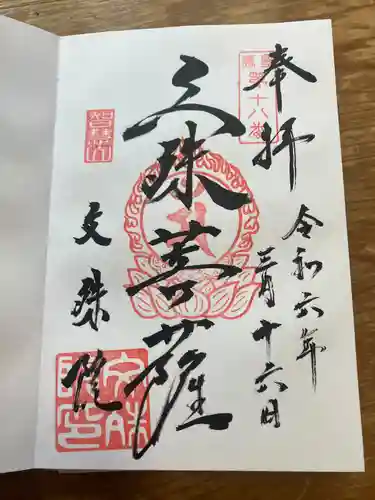 奉拝
第十八番
令和六年
三月十六日
文殊菩薩
文殊院
文殊院印